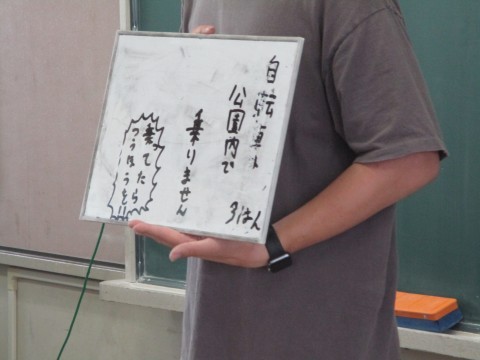 自転車は
公園内で
乗りません
3はん
乗ってたら
つうほうを!!